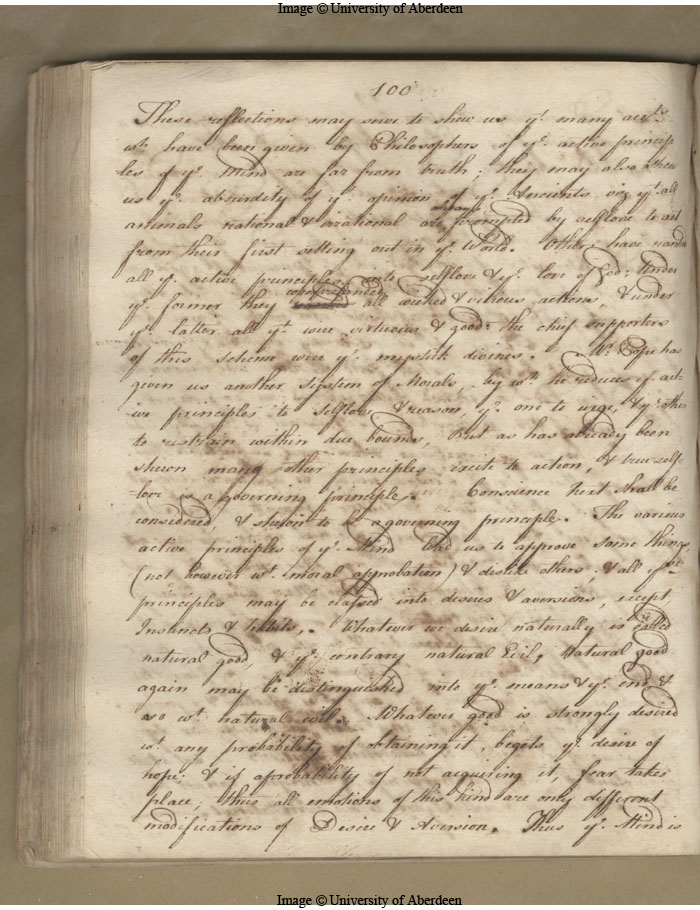 Image © University of Aberdeen
100
These reflections may serve to shew us yt. many accts.
wh. have been given by Philosophers of ye. active princip
les of ye. Mind are far from truth; they may also shew
us ye. absurdity of ye. opinion of ye. Ancients viz yt. all
animals rational & irrational are always prompted by selflove to act
from their first setting out in ye. World. Others have
all ye. active principles into selflove & ye. love of God; Under
ye. former they comprehended all wicked & vicious actions, & under
ye. latter all yt. were virtuous & good: the chief supporters
of this scheme were ye. mystick divines. Mr. Pope has
given us another system of Morals, by wh. he reduces ye. act-
ive principles to selflove & reason, ye. one to urge, & ye. other
to restrain within due bounds, But as has already been
shewn many other principles incite to action, & true self-
-love is a governing principle. Conscience next shall be
considered, & shewn to be a governing principle. The various
active principles of ye. Mind lead us to approve some things
(not however wt. moral approbation) & dislike others; & all
principles may be classed into desires & aversions, except
Instincts & habits. Whatever we desire naturally is called
natural good & ye. contrary natural Evil, Natural good
again may be distinguished into ye. means & ye. end &
so wt. natural evil. Whatever good is strongly desired
wt. any probability of obtaining it, begets ye. desire of
hope; & if a probability of not acquiring it, fear takes
place; thus all emotions of this kind are only different
modifications of Desire & Aversion. Thus ye. Mind is
Image © University of Aberdeen